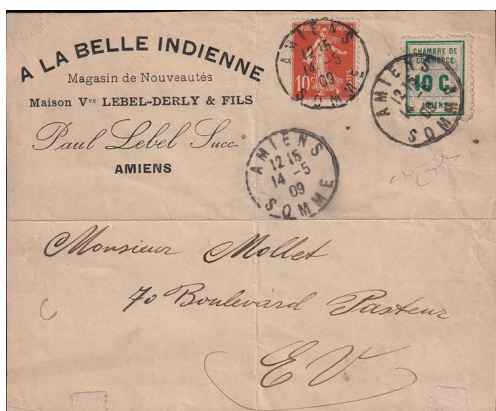 A LA BELLE INDIENNE
Magasin de Nouveautés
Maison Vve LEBEL-DERLY & FILS
Paul Lebel Succr
AMIENS
AMIENS
12 15
-5
09
SOMME
10c
CHAMBRE DE
COMMERCE
10 C.
AMIENS
AMIENS
12 15
14
09
SOMME
AMIENS
12 15
14 -5
09
SOMME
Monsieur Mollet
70 Boulevard Pasteur
E V